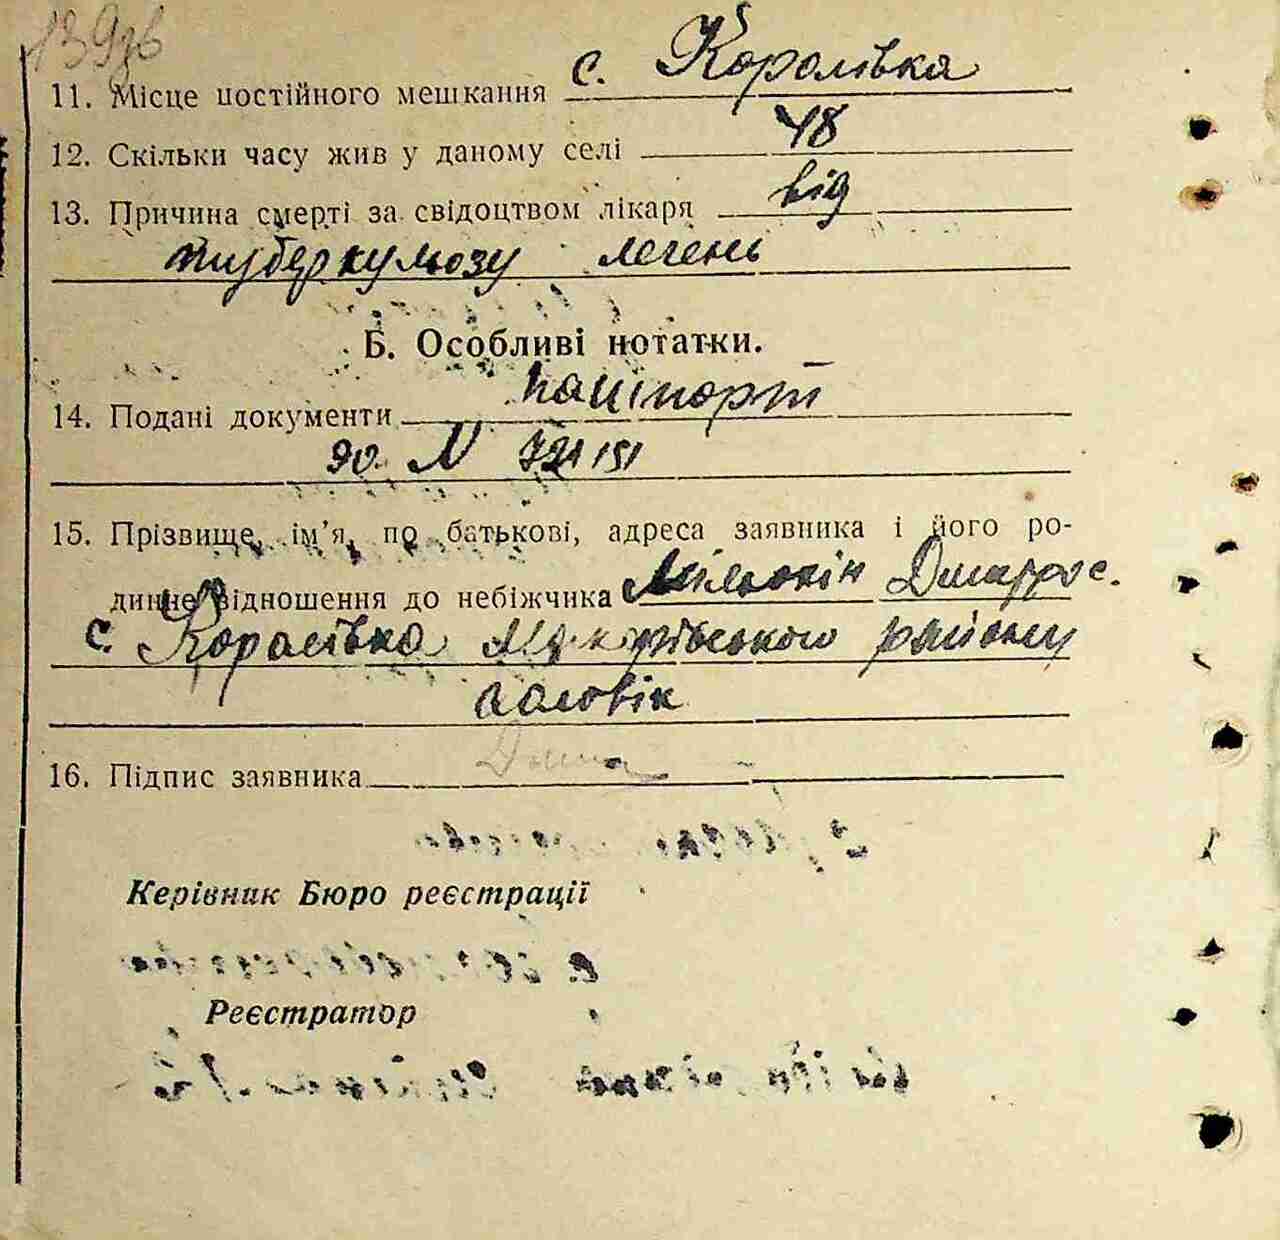 11. Місце постійного мешкання с. Королівка
12. Скільки часу жив у даному селі 48
13. Причина смерті за свідоцтвом лікаря від
туберкульозу легень
Б. Особливі нотатки.
14. Подані документи пашпорт
№ 721151
15. Прізвище, ім'я, по батькові, адреса заявника і його ро-
динне відношення до небіжчика Дмитро с.
с. Королівка Макарівського району
чоловік
16. Підпис заявника
Керівник Бюро реєстрації
Реєстратор